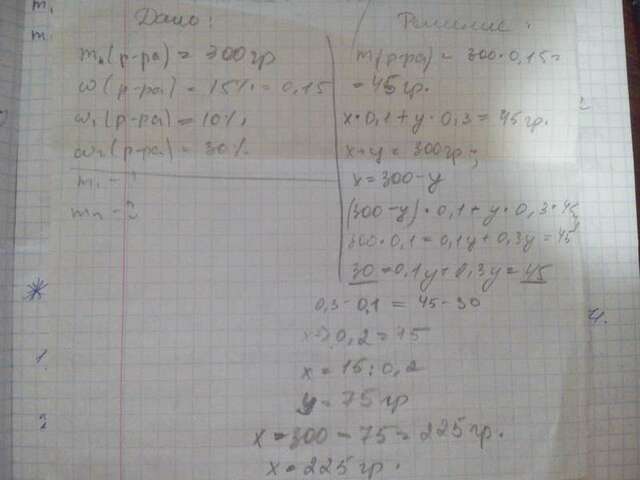 Дано:
mₙ(р-ра) = 300гр
ω(р-ра) = 15% = 0,15
ω₁(р-ра) = 10%
ω₂(р-ра) = 30%
m₁ - ?
m₂ - ?
Решение:
m(р-ра) = 300·0,15=
= 45гр.
x·0,1+y·0,3=45гр.
x+y=300гр;
x=300-y
(300-y)·0,1+y·0,3=45
300·0,1=0,1y+0,3y=45
30=0,1y+0,3y=45
0,3-0,1=45-30
0,2=15
x=15:0,2
y=75гр
x=300-75=225гр.
x=225гр.
m
m
1.
2
4.